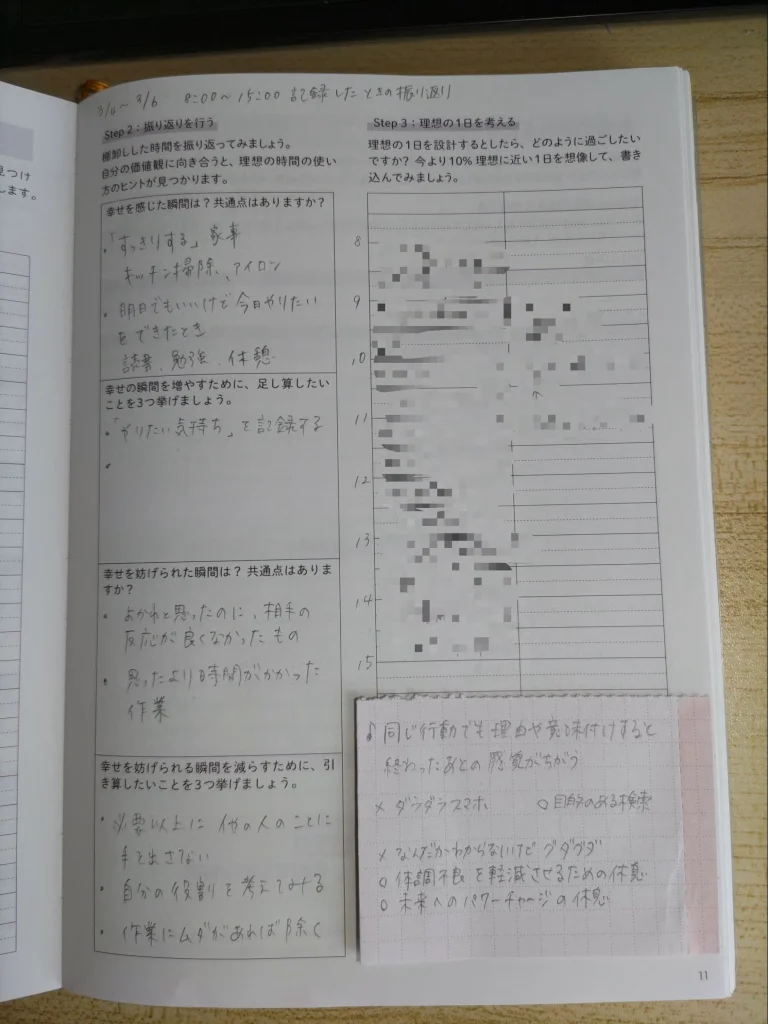 3/4～3/6 8:00～15:00 記録したときの振り返り
Step 2：振り返りを行う
棚卸しした時間を振り返ってみましょう。
自分の価値観に向き合うと、理想の時間の使い
方のヒントが見つかります。
幸せを感じた瞬間は？ 共通点はありますか？
・「すっきりする」家事
キッチン掃除、アイロン
・明日でもいいけど今日やりたい
をできたとき
読書、勉強、休憩
幸せの瞬間を増やすために、足し算したい
ことを3つ挙げましょう。
・「やりたい気持ち」を記録する
・
幸せを妨げられた瞬間は？ 共通点はありま
すか？
・よかれと思ったのに、相手の
反応が良くなかったもの
・思ったより時間がかかった
作業
幸せを妨げられる瞬間を減らすために、引
き算したいことを3つ挙げましょう。
・必要以上に他の人のことに
手を出さない
・自分の役割を考えてみる
・作業にムダがあれば除く
Step 3：理想の1日を考える
理想の1日を設計するとしたら、どのように過ごしたい
ですか？ 今より10% 理想に近い1日を想像して、書き
込んでみましょう。
8
9
10
11
12
13
14
15
♪同じ行動でも理由や意味付けすると
終わったあとの感覚がちがう
× ダラダラスマホ ○目的のある検索
× なんだかわからないけどグダグダ
○ 体調不良を軽減させるための休息
○ 未来へのパワーチャージの休息
11
見つけ
します。